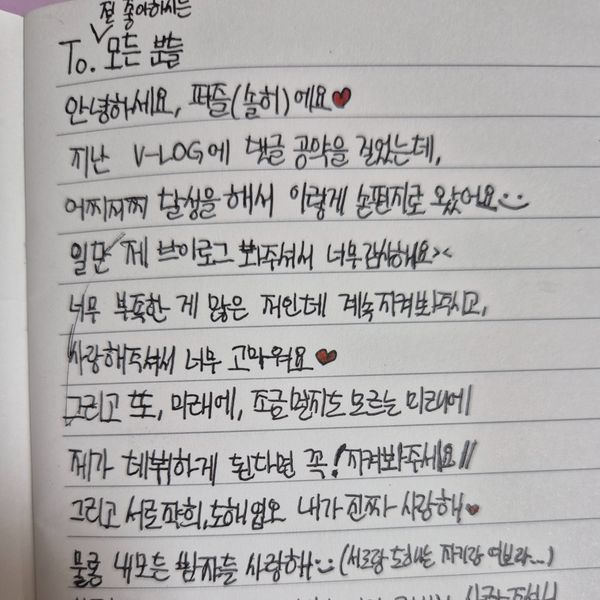 절 좋아하시는
To. 모든 분들
안녕하세요, 퍼즐(솔히)에요♥
지난 V-LOG에 댓글 공약을 걸었는데,
어찌저찌 달성을 해서 이렇게 손편지로 왔어요
일단 제 브이로그 봐주셔서 너무 감사해요><
너무 부족한 게 많은 저인데 계속 지켜봐주시고,
사랑해주셔서 너무 고마워요♥
그리고 또, 미래에, 조금 멀지도 모르는 미래에
제가 데뷔하게 된다면 꼭! 지켜봐주세요!!
그리고 서로작희, 도해업오 내가 진짜 사랑해♥
물론 내 모든 팜자들 사랑해 (서로랑 도해는 자기랑 여보라...)